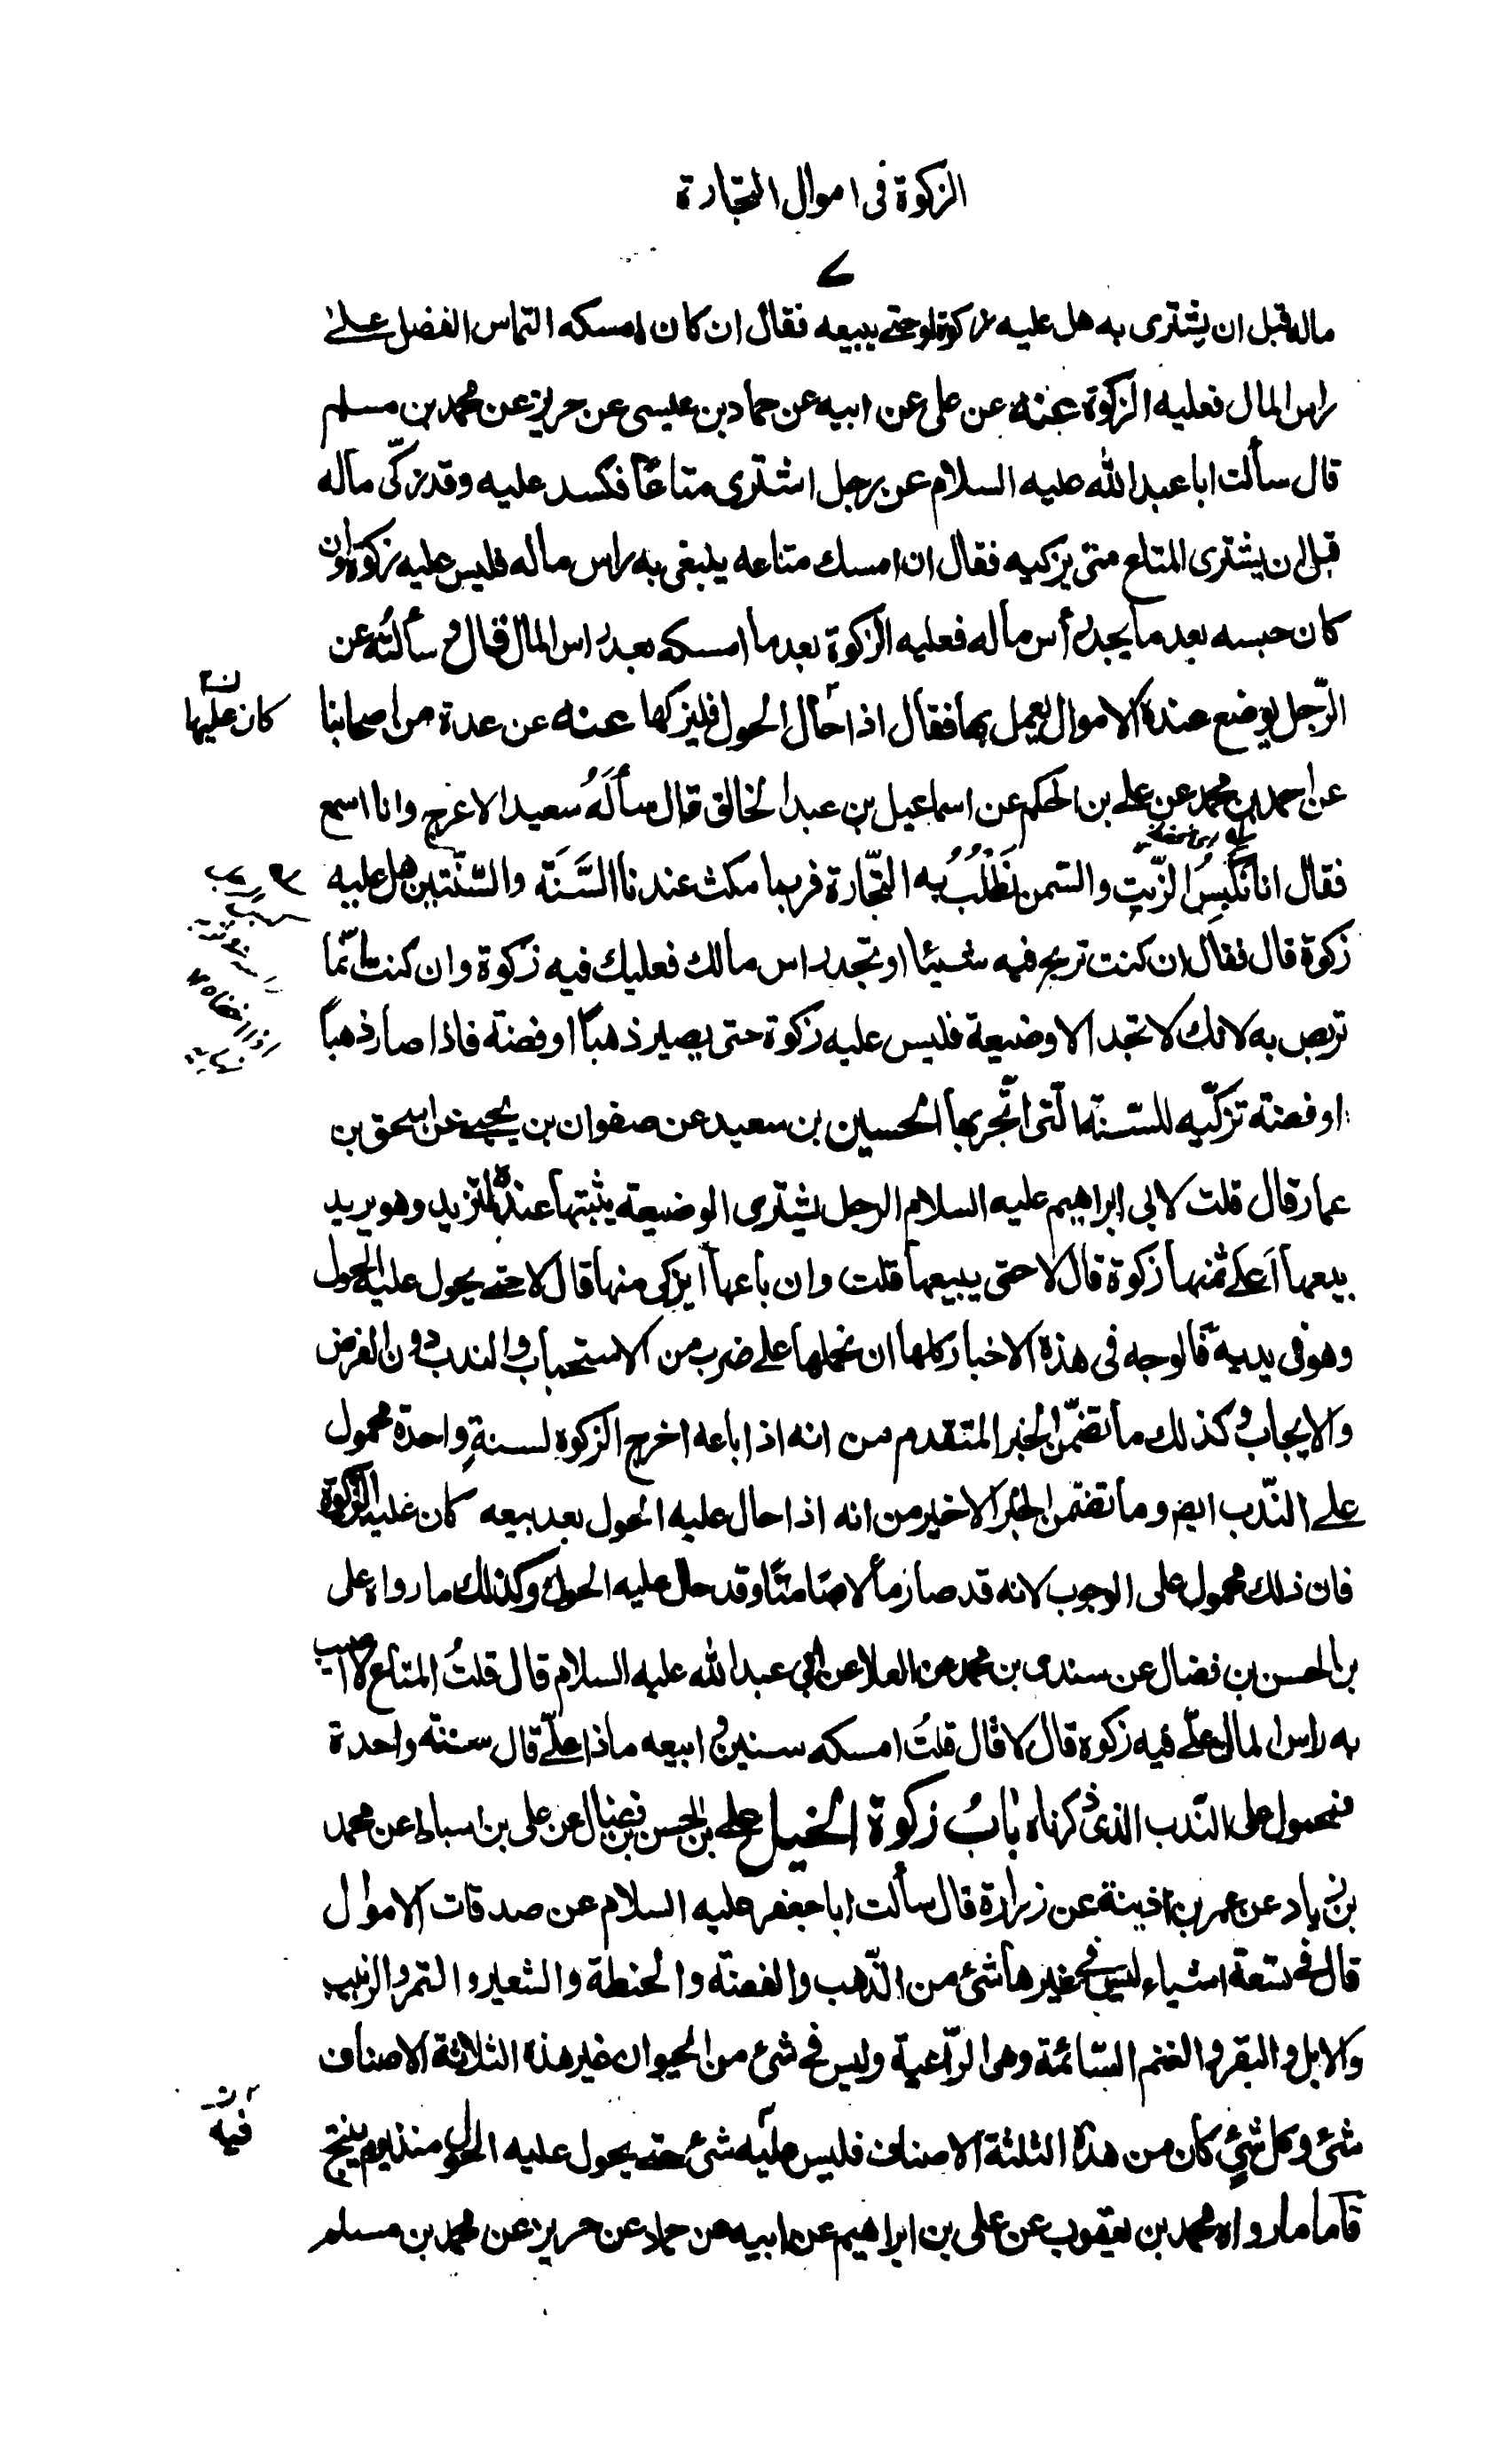 الزكوة فى اموال التجارة
٧
ماله قبل ان يشترى به هل عليه زكوة اوحتى يبيعه فقال ان كان امسكه التماس الفضل على
راس المال فعليه الزكوة عنه عن على عن ابيه عن حماد بن عيسى عن حريز عن محمد بن مسلم
قال سألت ابا عبد الله عليه السلام عن رجل اشترى متاعًا فكسد عليه وقد زكّى ماله
قبل ان يشترى المتاع متى يزكيه فقال ان امسك متاعه يبتغى به راس ماله فليس عليه زكوة وان
كان حبسه بعد ما يجد رأس ماله فعليه الزكوة بعد ما امسكه بعد راس المال قال وسألته عن
الرّجل يوضع عنده الاموال يعمل بها فقال اذا حال الحول فليزكها عنه عن عدة من اصحابنا
كان عليها
عن احمد بن محمد عن على بن الحكم عن اسماعيل بن عبد الخالق قال سأله سعيد الاعرج وانا اسمع
فقال انا نكبس الزّيت والسمن نطلب به التّجارة فربما مكث عندنا السَّنَة والسّنتين هل عليه
زكوة قال فقال ان كنت تربح فيه شيئا اوتجد راس مالك فعليك فيه زكوة وان كنت انّما
تربص به لانك لا تجد الا وضيعة فليس عليه زكوة حتى يصير ذهبًا اوفضة فاذا صار ذهبًا
اوفضة تزكّيه للسّنة الّتى اتّجر بها الحسين بن سعيد عن صفوان بن يحيى عن اسحق بن
عمار قال قلت لابى ابراهيم عليه السلام الرجل يشترى الوضيعة يثبتها عنده لتزيد وهو يريد
بيعها اعلى ثمنها زكوة قال لا حتى يبيعها قلت وان باعها ايزكى منها قال لا حتى يحول عليه الحول
وهو فى يديه فالوجه فى هذه الاخبار كلها ان نحملها على ضرب من الاستحباب والندب دون الفرض
والايجاب وكذلك ما تضمّن الخبر المتقدم من انه اذا باعه اخرج الزكوة لسنةٍ واحدة محمول
على النّدب ايضا وما تضمّن الخبر الاخير من انه اذا حال عليه الحول بعد بيعه كان عليه الزكوة
فان ذلك محمول على الوجوب لانه قد صار مالا صامتًا وقد حال عليه الحول وكذلك ما رواه على
بن الحسن بن فضال عن سندى بن محمد عن العلا عن ابى عبد الله عليه السلام قال قلتُ المتاع لا اصيب
به راس المال على فيه زكوة قال لا قال قلتُ امسكه سنين و ابيعه ماذا علىّ قال سنة واحدة
فمحمول على النّدب الذى ذكرناه بابُ زكوة الخيل على بن الحسن بن فضال عن على بن اسباط عن محمد
بن زياد عن عمر بن اذينة عن زرارة قال سألت ابا جعفر عليه السلام عن صدقات الاموال
قال فى تسعة اشياء ليس فى غيرها شئ من الذّهب والفضة والحنطة والشعير والتمر والزبيب
والابل والبقر والغنم السّائمة وهى الرّاعية وليس فى شئ من الحيوان غير هذه الثلاثة الاصناف
شئ وكل شئٍ كان من هذه الثلثة الاصناف فليس عليه شئ حتى يحول عليه الحول منذ يوم ينتج
فيه
فاما ما رواه محمد بن يعقوب عن على بن ابراهيم عن ابيه عن حماد عن حريز عن محمد بن مسلم